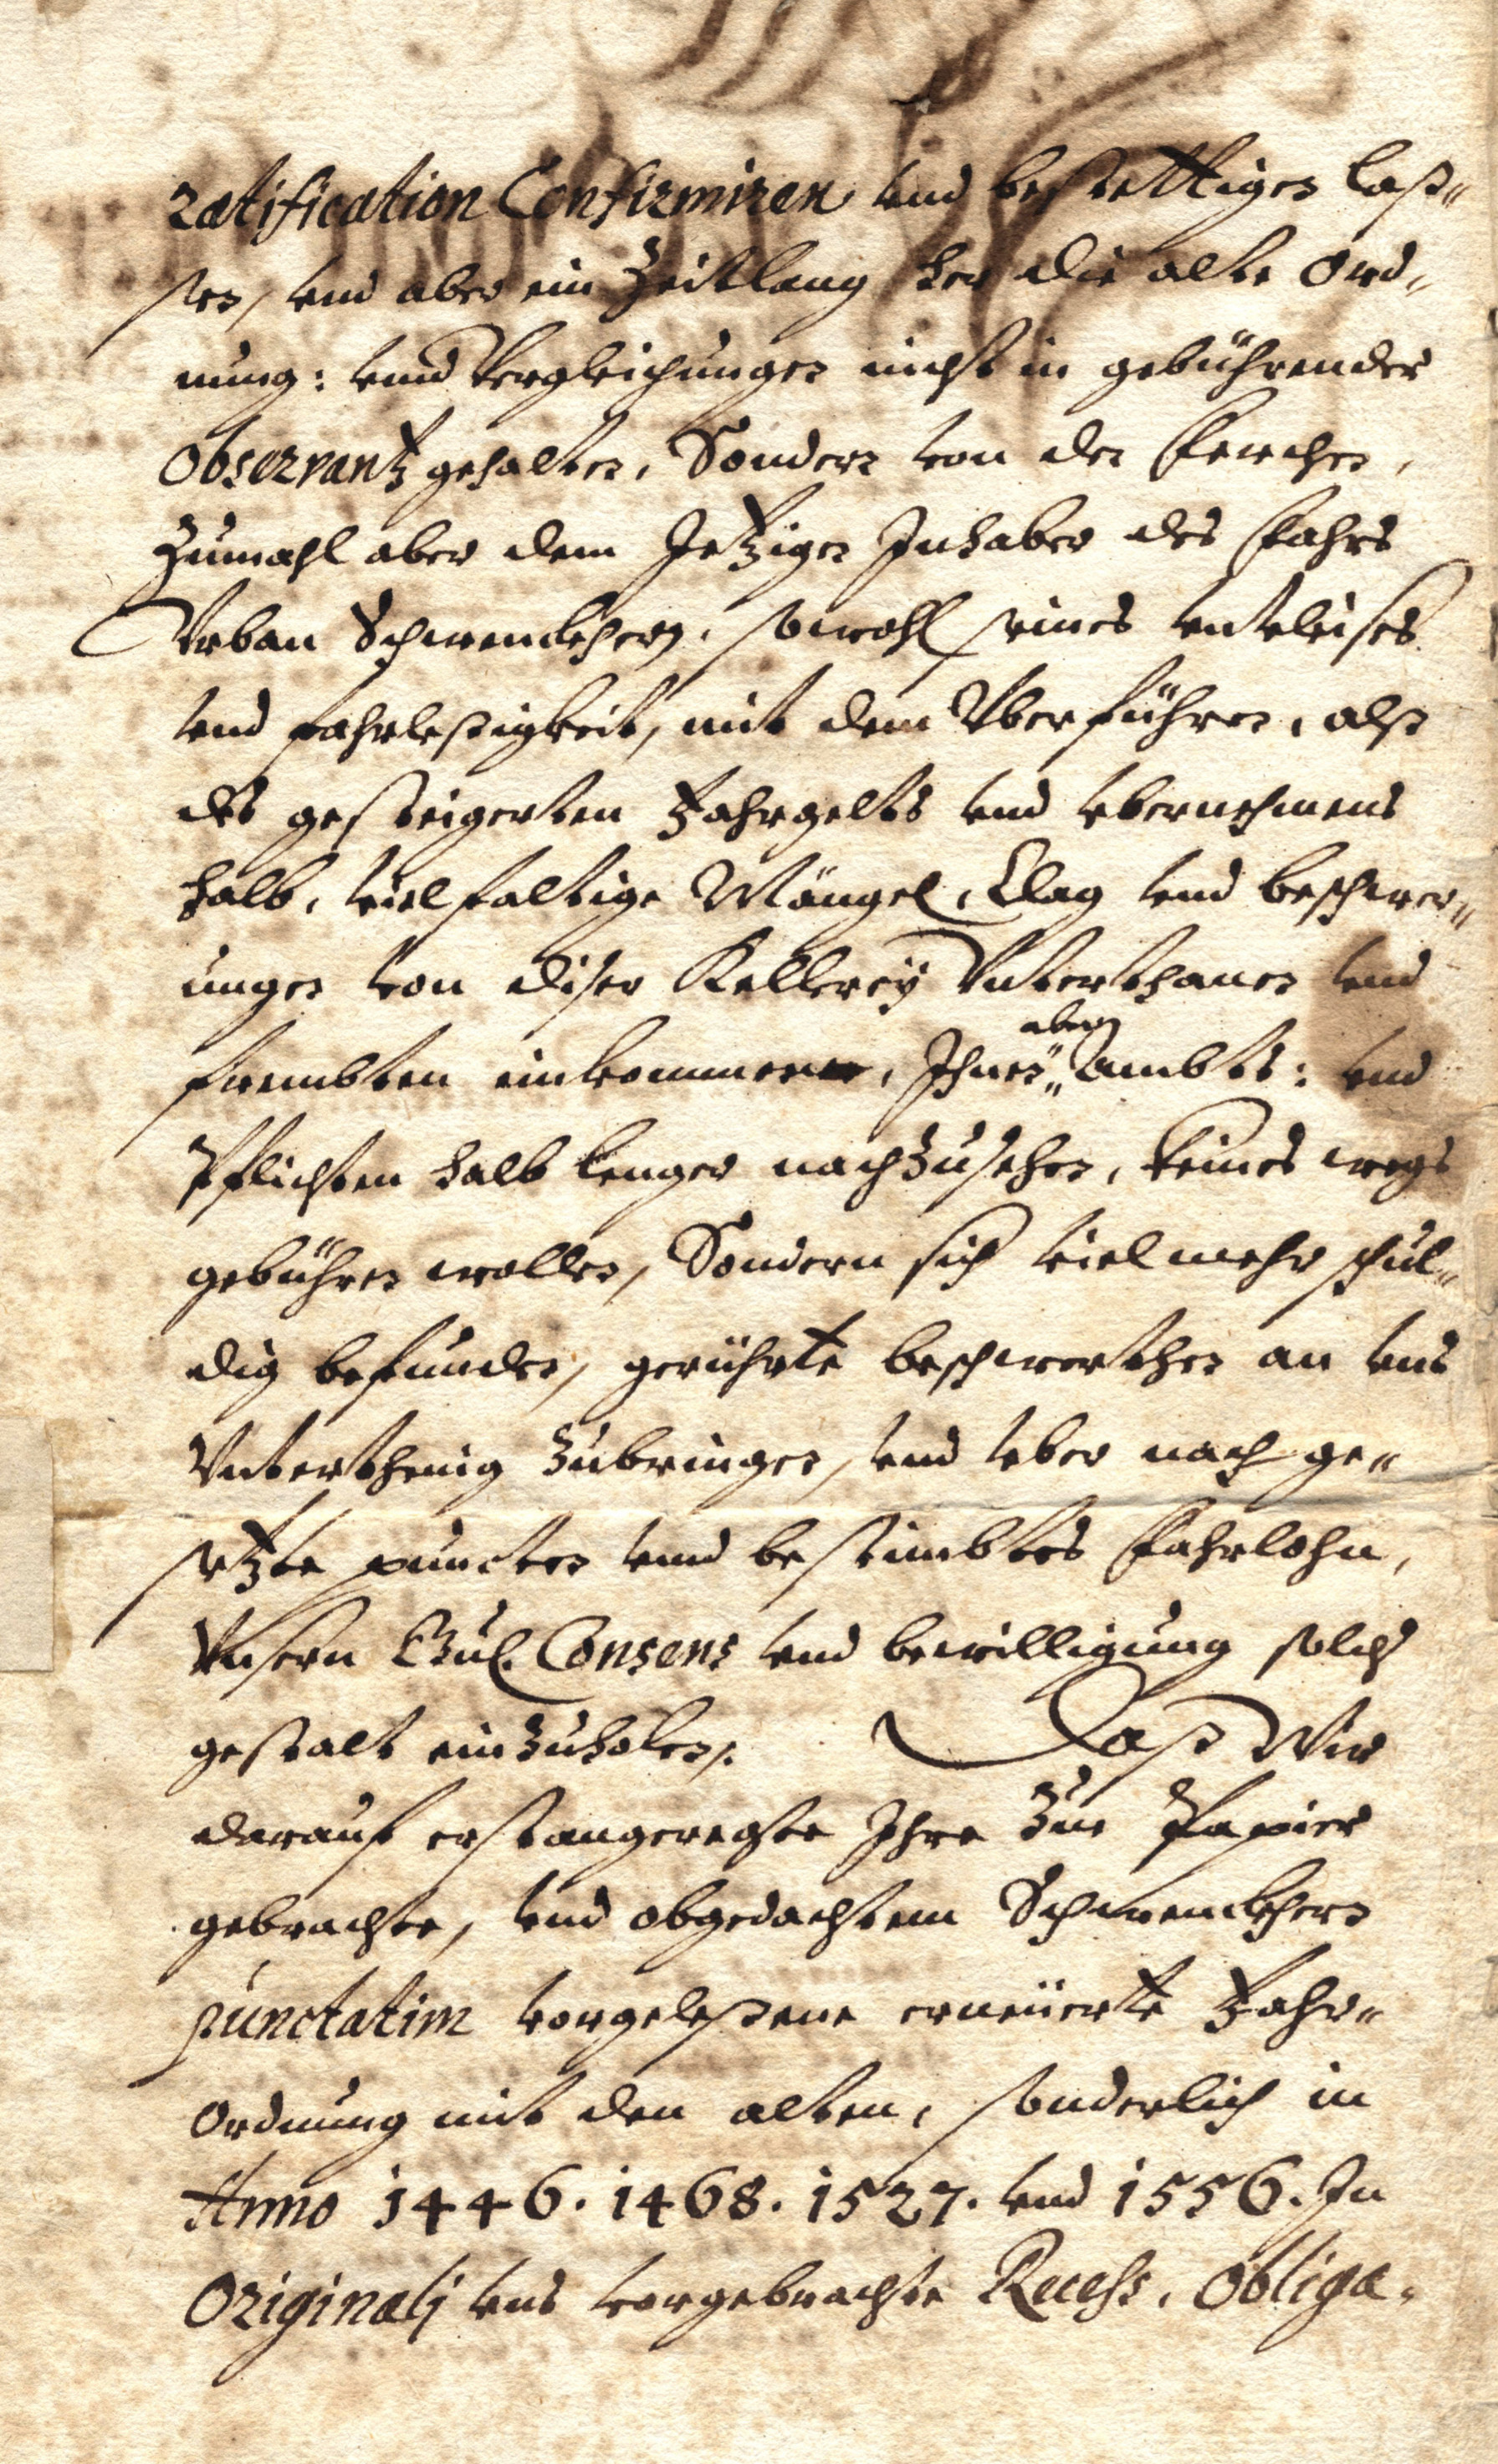 ratification Confirmiren vnd bestettigen laß„
sen, vnd aber ein Zeitlang her die alte Ord„
nung: vnnd Vergleichungen nicht in gebührender
Observantz gehalten, Sondern von den Feerchen,
Zumahl aber dem Jetzigen Inhaber des Fahrs
Vrban Schwenckhern, sowohl seines vnfleises
vnd fahrleßigkeit, mit dem Vberführen, alß
des gesteigerten Fahrgelts vnd vbernehmens
halb, vielfaltige Mängel, Clag vnd beschwer„
ungen von diser Kellerey Vnterthanen vnd
frembten einkommen, Ihnen„ aber Ambts: vnd
Pflichten halb lenger nachzusehen, keines wegs
gebühren wollen, Sondern sich viel mehr schul„
dig befunden, gerührte beschwerthen an vns
Vnterthenig zubringen, vnd vber nach ge„
setzte puncten vnnd bestimbtes Fahrlohn,
Vnsern Consens vnd bewilligung solch
gestalt einzuholen. Daß Wir
darauf erstangeregte Ihre zue Papier
gebrachte, vnd obgedachtem Schwenckhern
punctatim vorgeleßene erneüerte Fahr„
Ordnung mit den alten, sonderlich in
Anno 1446. 1468. 1527. vnd 1556. In
Originalj vns vorgebrachte Recess, Obliga„